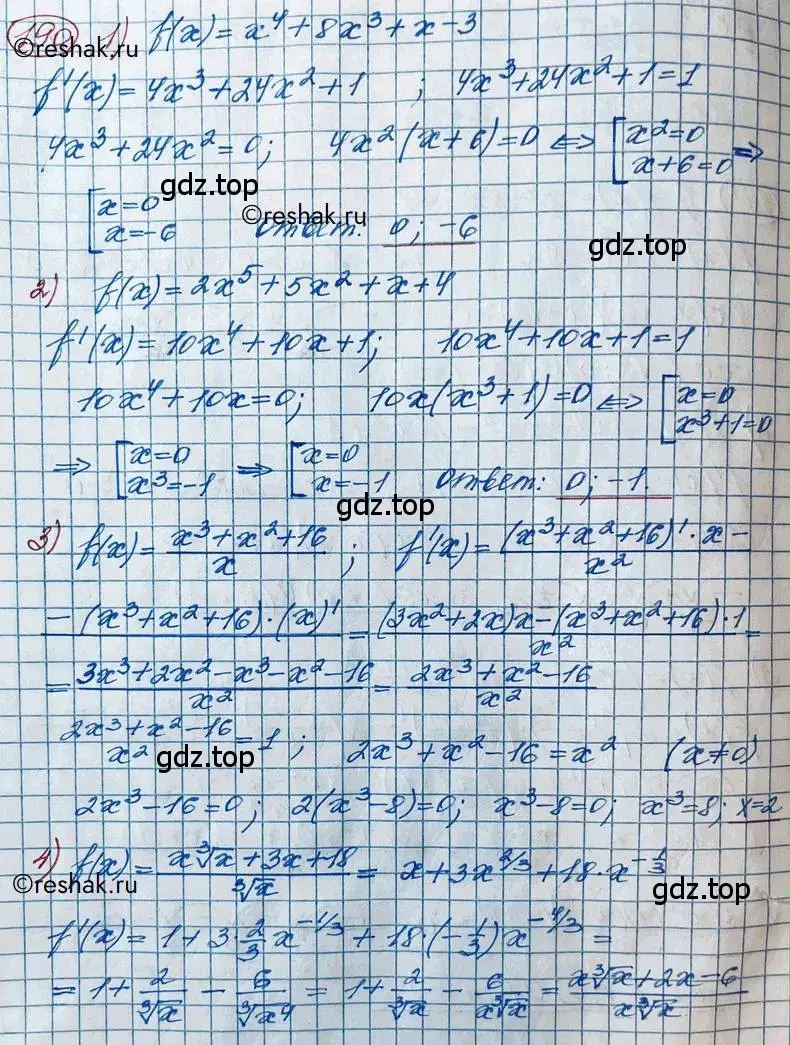 190 1) f(x) = x⁴ + 8x³ + x - 3
©reshak.ru
f'(x) = 4x³ + 24x² + 1 ; 4x³ + 24x² + 1 = 1
4x³ + 24x² = 0; 4x²(x+6) = 0 ⟺ [x² = 0 x+6 = 0 ⟹
gdz.top
[x = 0 x = -6 Ответ: 0; -6
©reshak.ru
gdz.top
2) f(x) = 2x⁵ + 5x² + x + 4
f'(x) = 10x⁴ + 10x + 1; 10x⁴ + 10x + 1 = 1
10x⁴ + 10x = 0; 10x(x³ + 1) = 0 ⟺ [x = 0 x³ + 1 = 0
⟹ [x = 0 x³ = -1 ⟹ [x = 0 x = -1 Ответ: 0; -1.
gdz.top
3) f(x) = (x³ + x² + 16)/x ; f'(x) = ((x³ + x² + 16)' · x -
- (x³ + x² + 16) · (x)')/x² = ((3x² + 2x)x - (x³ + x² + 16) · 1)/x² =
= (3x³ + 2x² - x³ - x² - 16)/x² = (2x³ + x² - 16)/x²
(2x³ + x² - 16)/x² = 1 ; 2x³ + x² - 16 = x² (x ≠ 0)
gdz.top
2x³ - 16 = 0; 2(x³ - 8) = 0; x³ - 8 = 0; x³ = 8; x = 2
4) f(x) = (x∛x + 3x + 18)/∛x = x + 3x^(2/3) + 18 · x^(-1/3)
©reshak.ru
gdz.top
f'(x) = 1 + 3 · 2/3 x^(-1/3) + 18 · (-1/3) x^(-4/3) =
= 1 + 2/∛x - 6/∛x⁴ = 1 + 2/∛x - 6/(x∛x) = (x∛x + 2x - 6)/(x∛x)